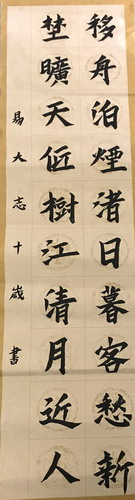 移舟泊煙渚日暮客愁新
埜曠天低樹江清月近人
易大志十歲書